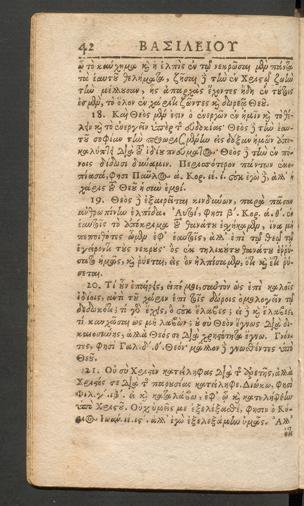 42 ΒΑΣΙΛΕΙΟΥ
ᾧ τὸ καύχημα καὶ ἡ ἐλπὶς ἐν τῷ νεκρῶσαι μὲν πάντα
τὰ ἑαυτοῦ θελήματα, ζητῆσαι δὲ τὴν ἐν Χριστῷ ζωὴν
τὴν μέλλουσαν, ἧς ἀπαρχὰς ἔχοντες ἤδη ἐν τούτοις
ἐσμὲν, τὸ ὅλον ἐν χάριτι ζῶντες καὶ δωρεᾷ Θεοῦ.
18. Καὶ Θεὸς μέν ἐστιν ὁ ἐνεργῶν ἐν ἡμῖν καὶ τὸ θέ-
λειν καὶ τὸ ἐνεργεῖν ὑπὲρ τῆς εὐδοκίας· Θεὸς δὲ τὴν ἑαυ-
τοῦ σοφίαν τὴν εἰς δόξαν ἡμῶν ἀπο-
καλύπτει διὰ τοῦ ἰδίου πνεύματος. Θεὸς δὲ τὴν ἐν τοῖς πό-
νοις δίδωσι δύναμιν. Περισσότερον πάντων ἐκο-
πίασα, φησὶ Παῦλος α. Κορ. ιε. ι. οὐκ ἐγὼ δὲ, ἀλλ' ἡ
χάρις τοῦ Θεοῦ ἡ σὺν ἐμοί.
19. Θεὸς δὲ ἐξαιρεῖται κινδύνων, παρὰ πᾶσαν
ἀνθρωπίνην ἐλπίδα. Αὐτοὶ, φησὶ β. Κορ. α. θ. ἐν
ἑαυτοῖς τὸ ἀπόκριμα τοῦ θανάτου ἐσχήκαμεν, ἵνα μὴ
πεποιθότες ὦμεν ἐφ' ἑαυτοῖς, ἀλλ' ἐπὶ τῷ Θεῷ τῷ
ἐγείροντι τοὺς νεκρούς· ὃς ἐκ τηλικούτου θανάτου ἐρρύ-
σατο ἡμᾶς, καὶ ῥύεται, εἰς ὃν ἠλπίκαμεν, ὅτι καὶ ἔτι ῥύ-
σεται.
20. Τί οὖν ἐπαίρῃ, εἰπέ μοι, σαυτὸν ὡς ἐπὶ καλοῖς
ἰδίοις, ἀντὶ τοῦ χάριν ἐπὶ τοῖς δώροις ὁμολογεῖν τῷ
δεδωκότι; τί γὰρ ἔχεις, ὃ οὐκ ἔλαβες; εἰ δὲ καὶ ἔλαβες,
τί καυχᾶσαι ὡς μὴ λαβών; οὐ σὺ Θεὸν ἔγνως διὰ δι-
καιοσύνης, ἀλλὰ Θεός σε διὰ χρηστότητα ἔγνω. Γνόν-
τες, φησὶ Γαλ. δ. θ. Θεὸν μᾶλλον δὲ γνωσθέντες ὑπὸ
Θεοῦ.
21. Οὐ σὺ Χριστὸν κατέλαβες διὰ τῆς ἀρετῆς, ἀλλὰ
Χριστός σε διὰ τῆς παρουσίας κατέλαβε. Διώκω, φησὶ
Φιλ. γ. ιβ. εἰ καὶ καταλάβω, ἐφ' ᾧ καὶ κατελήφθην
ὑπὸ Χριστοῦ. Οὐχ ὑμεῖς με ἐξελέξασθε, φησιν ὁ Κύ-
ριος Ἰωάν. ιε. ις. ἀλλ' ἐγὼ ἐξελεξάμην ὑμᾶς. Ἀλλ'